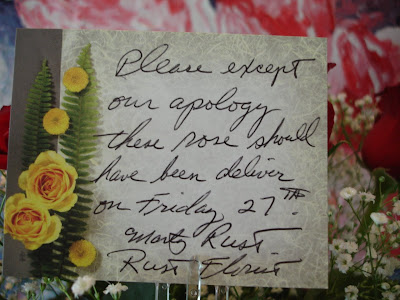 Please except
our apology
these rose should
have been deliver
on Friday 27TH.
Marty Rust
Rust Florist